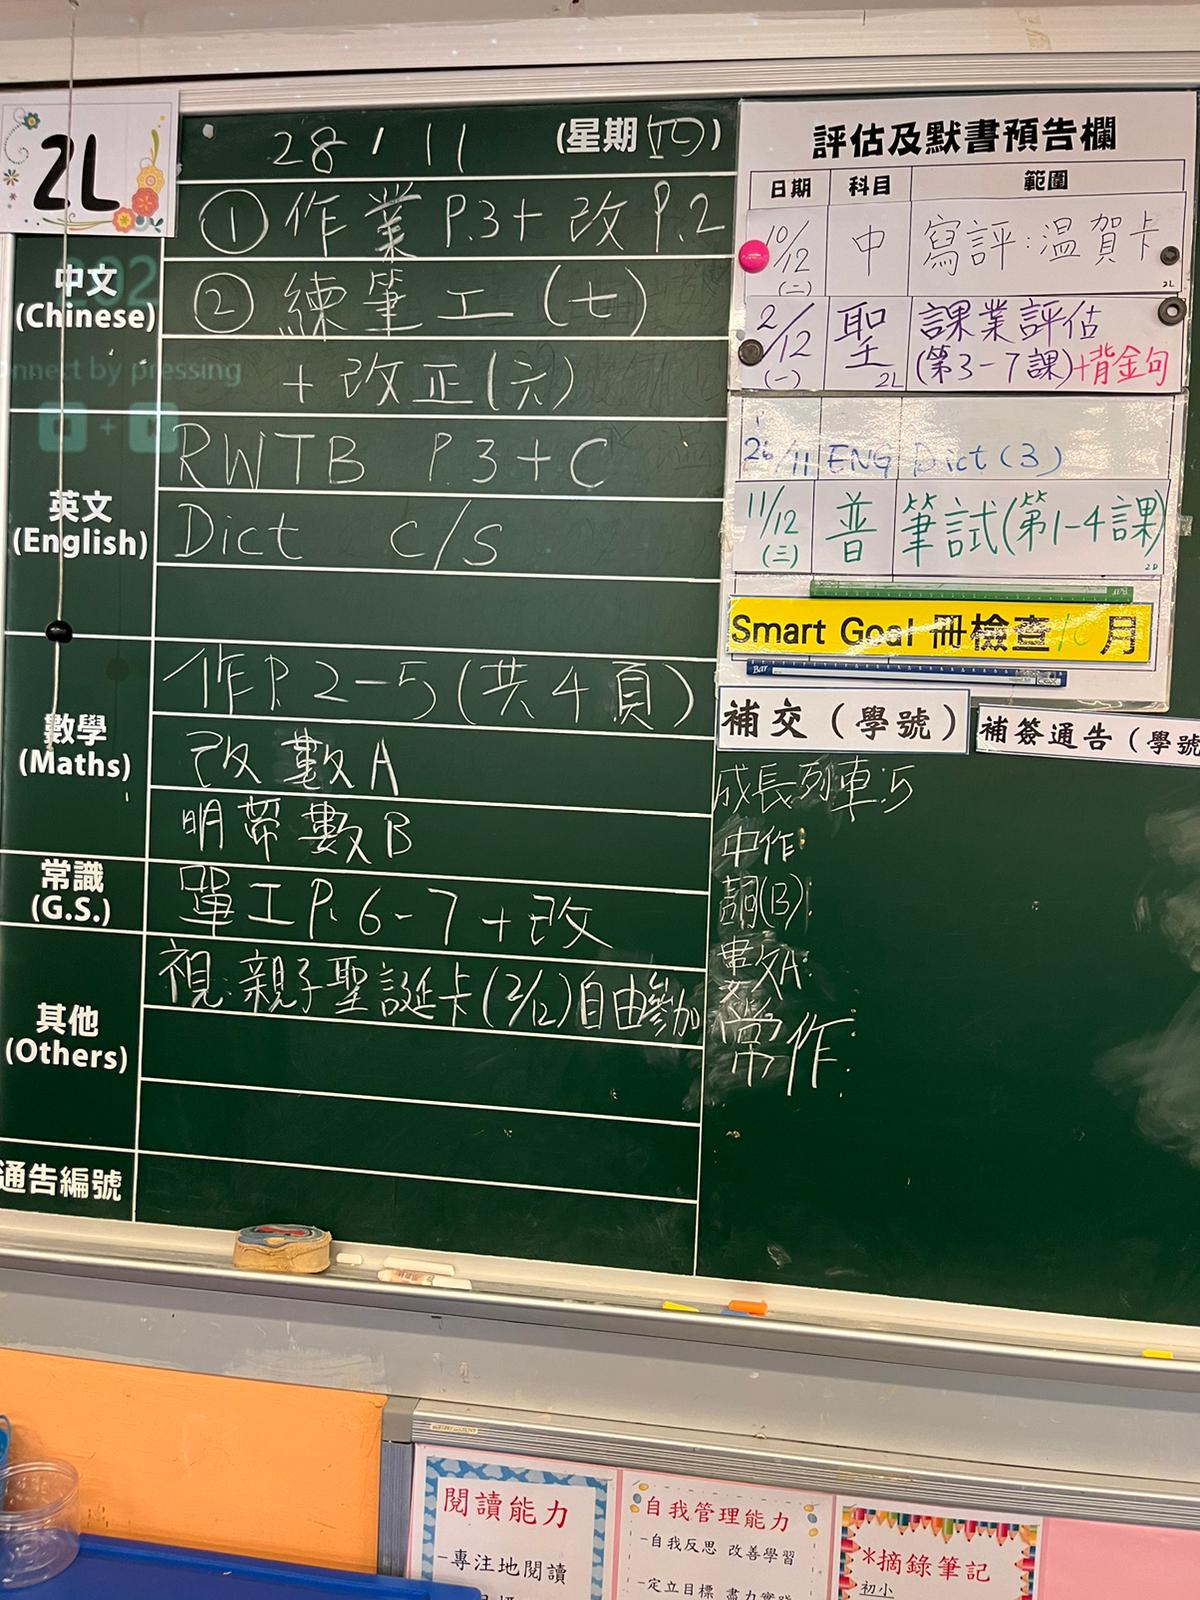 2L
28/11 (星期四)
中文
(Chinese)
① 作業 P.3+改 P.2
② 練筆工 (七)
+改正(六)
connect by pressing
英文
(English)
RWTB P.3+C
Dict c/s
數學
(Maths)
作P.2-5(共4頁)
改數A
明帶數B
常識
(G.S.)
單工P.6-7+改
其他
(Others)
視:親子聖誕卡(2/12)自由參加
通告編號
評估及默書預告欄
日期 科目 範圍
10/12 (二) 中 寫評:温賀卡
2L
2/12 (一) 聖 課業評估
2L (第3-7課)+背金句
26/11 ENG Dict (3)
11/12 (三) 普 筆試(第1-4課)
Smart Goal 冊檢查 月
補交(學號)
補簽通告(學號
成長列車:5
中作:
詞(B):
數A:
常作:
閱讀能力
-專注地閱讀
自我管理能力
-自我反思 改善學習
-定立目標
*摘錄筆記
初小